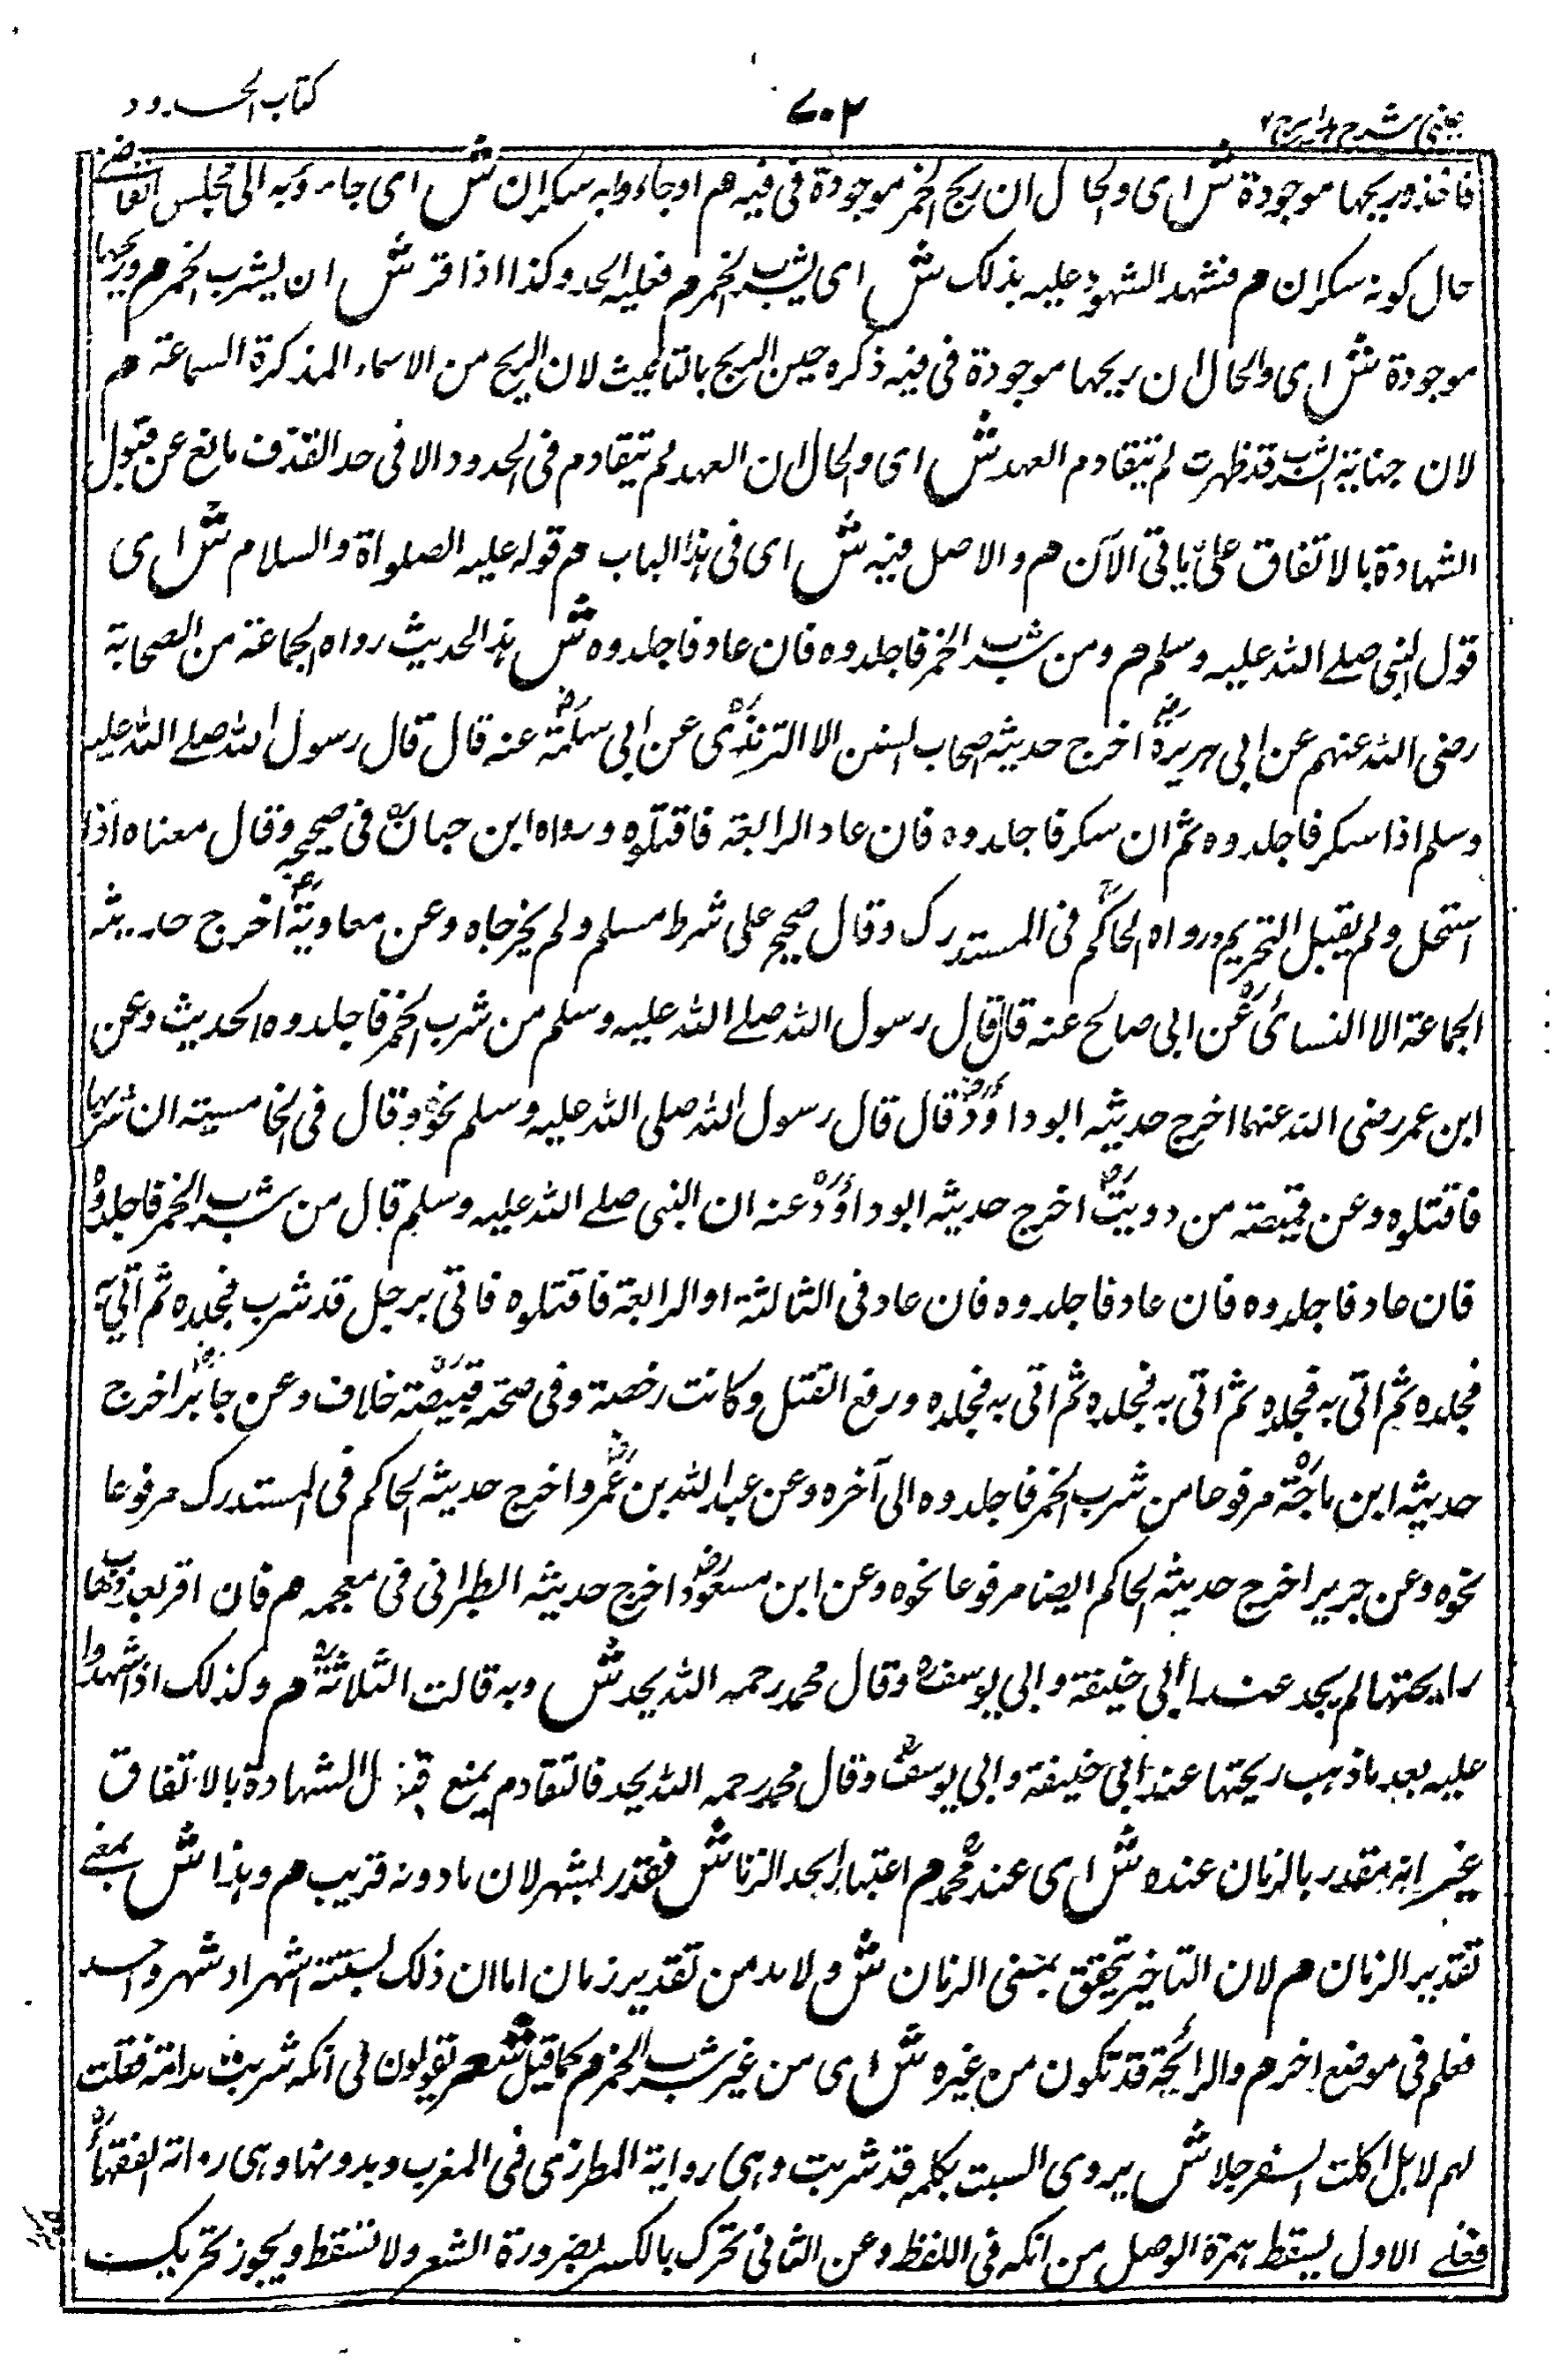 عینی شرح ہدایہ ج ۲
۷۰۲
کتاب الحدود
فاخذ وریحها موجودة ش ای والحال ان ریح الخمر موجودة فی فیه م او جاءوا به سکران ش ای جاءوا به الی مجلس القاضے
حال کونه سکران م فشهد الشهود علیه بذلک ش ای بشرب الخمر م فعلیه الحد وکذا اذا اقر ش ان یشرب الخمر م وریحها
موجودة ش ای والحال ان ریحها موجودة فی فیه ذکره حین الریح بالتانیث لان الریح من الاسماء المذکرة السماعة م
لان جنایة الشرب قد ظهرت لم یتقادم العهد ش ای والحال ان العهد لم یتقادم فی الحدود الا فی حد القذف مانع عن قبول
الشهادة بالاتفاق علی یاتی الآن م والاصل فیه ش ای فی هذا الباب م قوله علیه الصلواة والسلام ش ای
قول النبی صلے الله علیه وسلم م ومن شرب الخمر فاجلدوه فان عاد فاجلدوه ش هذا الحدیث رواه الجماعة من الصحابة
رضی الله عنهم عن ابی هریرة اخرج حدیثه اصحاب السنن الا الترمذی عن ابی سلمة عنه قال قال رسول الله صلے الله علیه
وسلم اذا سکر فاجلدوه ثم ان سکر فاجلدوه فان عاد الرابعة فاقتلوه ورواه ابن حبان فی صحیحه وقال معناه اذا
استحل ولم یقبل التحریم ورواه الحاکم فی المستدرک وقال صحیح علی شرط مسلم ولم یخرجاه وعن معاویة اخرج حدیثه
الجماعة الا النسائی عن ابی صالح عنه قال قال رسول الله صلے الله علیه وسلم من شرب الخمر فاجلدوه الحدیث وعن
ابن عمر رضی الله عنهما اخرج حدیثه ابو داود قال قال رسول الله صلی الله علیه وسلم نحوه وقال فی الخامسة ان شربها
فاقتلوه وعن قبیصة من دویب اخرج حدیثه ابو داود عنه ان النبی صلے الله علیه وسلم قال من شرب الخمر فاجلدوه
فان عاد فاجلدوه فان عاد فاجلدوه فان عاد فی الثالثة او الرابعة فاقتلوه فاتی برجل قد شرب فجلده ثم اتی به
فجلده ثم اتی به فجلده ثم اتی به فجلده ثم اتی به فجلده ورفع القتل وکانت رخصة وفی صحة قبیصة خلاف وعن جابر اخرج
حدیثه ابن ماجة مرفوعا من شرب الخمر فاجلدوه الی آخره وعن عبد الله بن عمرو اخرج حدیثه الحاکم فی المستدرک مرفوعا
نحوه وعن جریر اخرج حدیثه الحاکم ایضا مرفوعا نحوه وعن ابن مسعود اخرج حدیثه الطبرانی فی معجمه م فان اقر بعد ذهاب
رایحتها لم یحد عند ابی حنیفة وابی یوسف وقال محمد رحمه الله یحد ش وبه قالت الثلاثة م وکذلک اذا شهدوا
علیه بعد ما ذهب ریحتها عند ابی حنیفة وابی یوسف وقال محمد رحمه الله یحد فالتقادم یمنع قبول الشهادة بالاتفاق
غیر انه مقدر بالزمان عنده ش ای عند محمد م اعتبارا بحد الزنا ش فقدر بشهر لان ما دونه قریب م وهذا ش بمعنے
تقدیر الزمان م لان التاخیر یتحقق بمضی الزمان ش ولابد من تقدیر زمان اما ان ذلک بستة اشهر او شهر واحد
فعلم فی موضع اخر م والرائحة قد تکون من غیره ش ای من غیر شرب الخمر م کما قیل شعر یقولون لی انکه شربت مدامة فقلت
لهم لا بل اکلت السفرجلا ش یروی البیت بکلمه قد شربت وهی روایة المطرزی فی المغرب وبدونها وهی روایة الفقهاء
فعلے الاول یسقط همزة الوصل من انکه فی اللفظ وعن الثانی تحرک بالکسر لضرورة الشعر ولا تسقط ویجوز تحریک